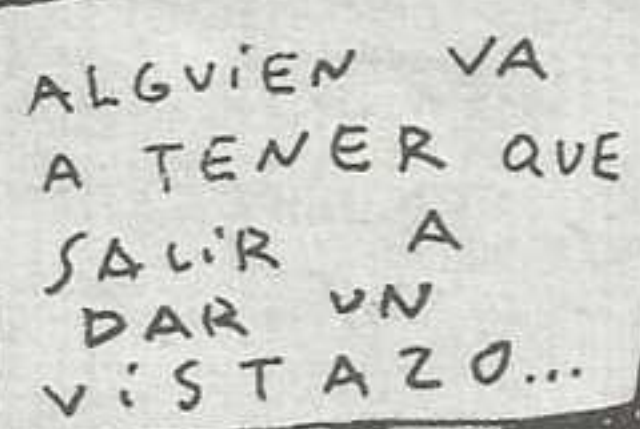 ALGUiEN VA
A TENER QUE
SALiR A
DAR UN
ViSTAZO...